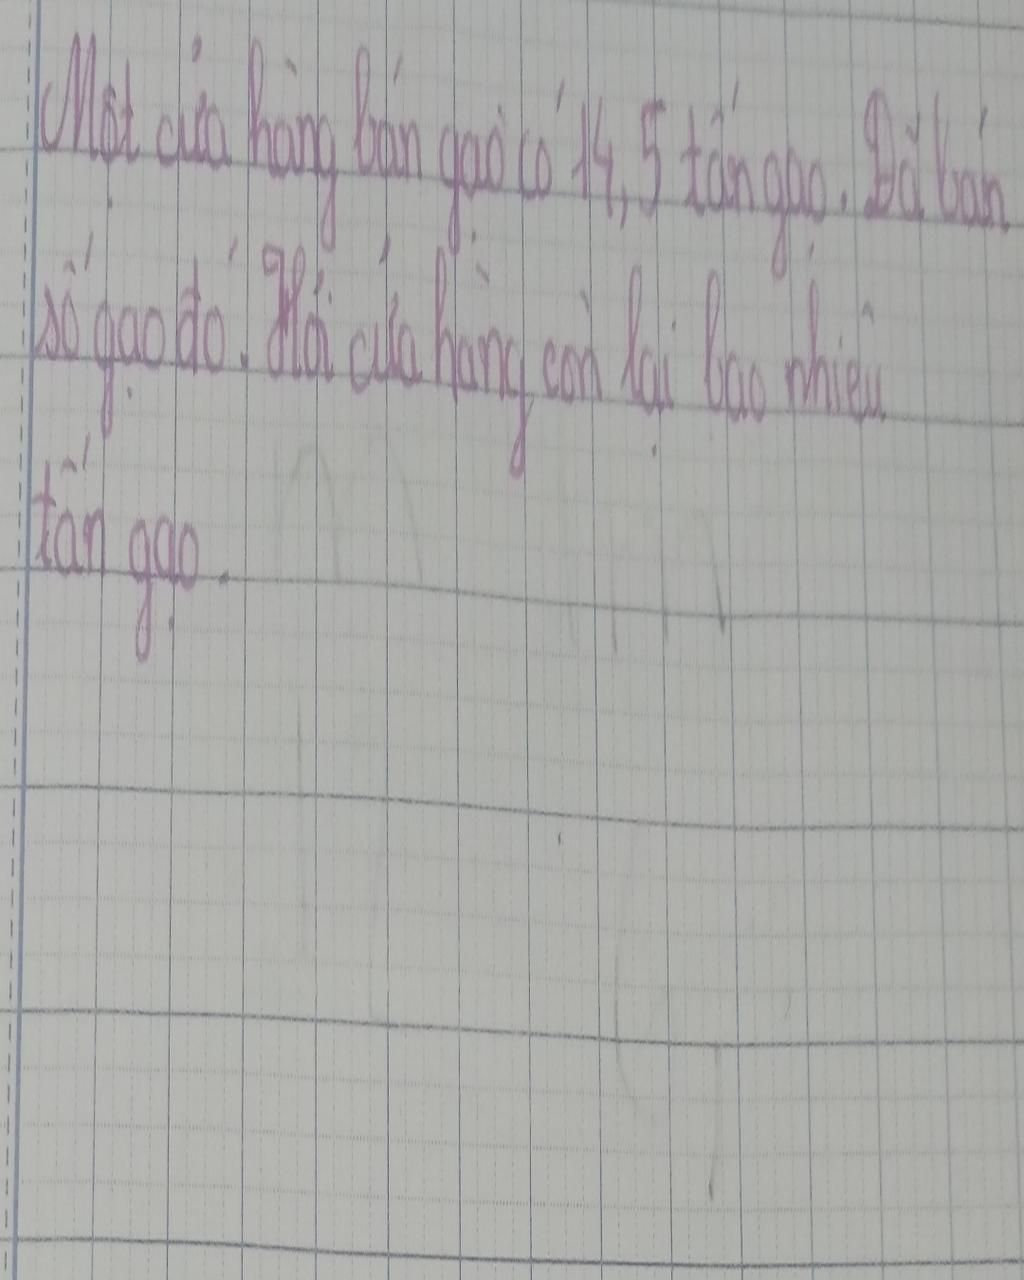 Một cửa hàng bán gạo có 14,5 tấn gạo. Đã bán
số gạo đó. Hỏi cửa hàng còn lại bao nhiêu
tấn gạo.